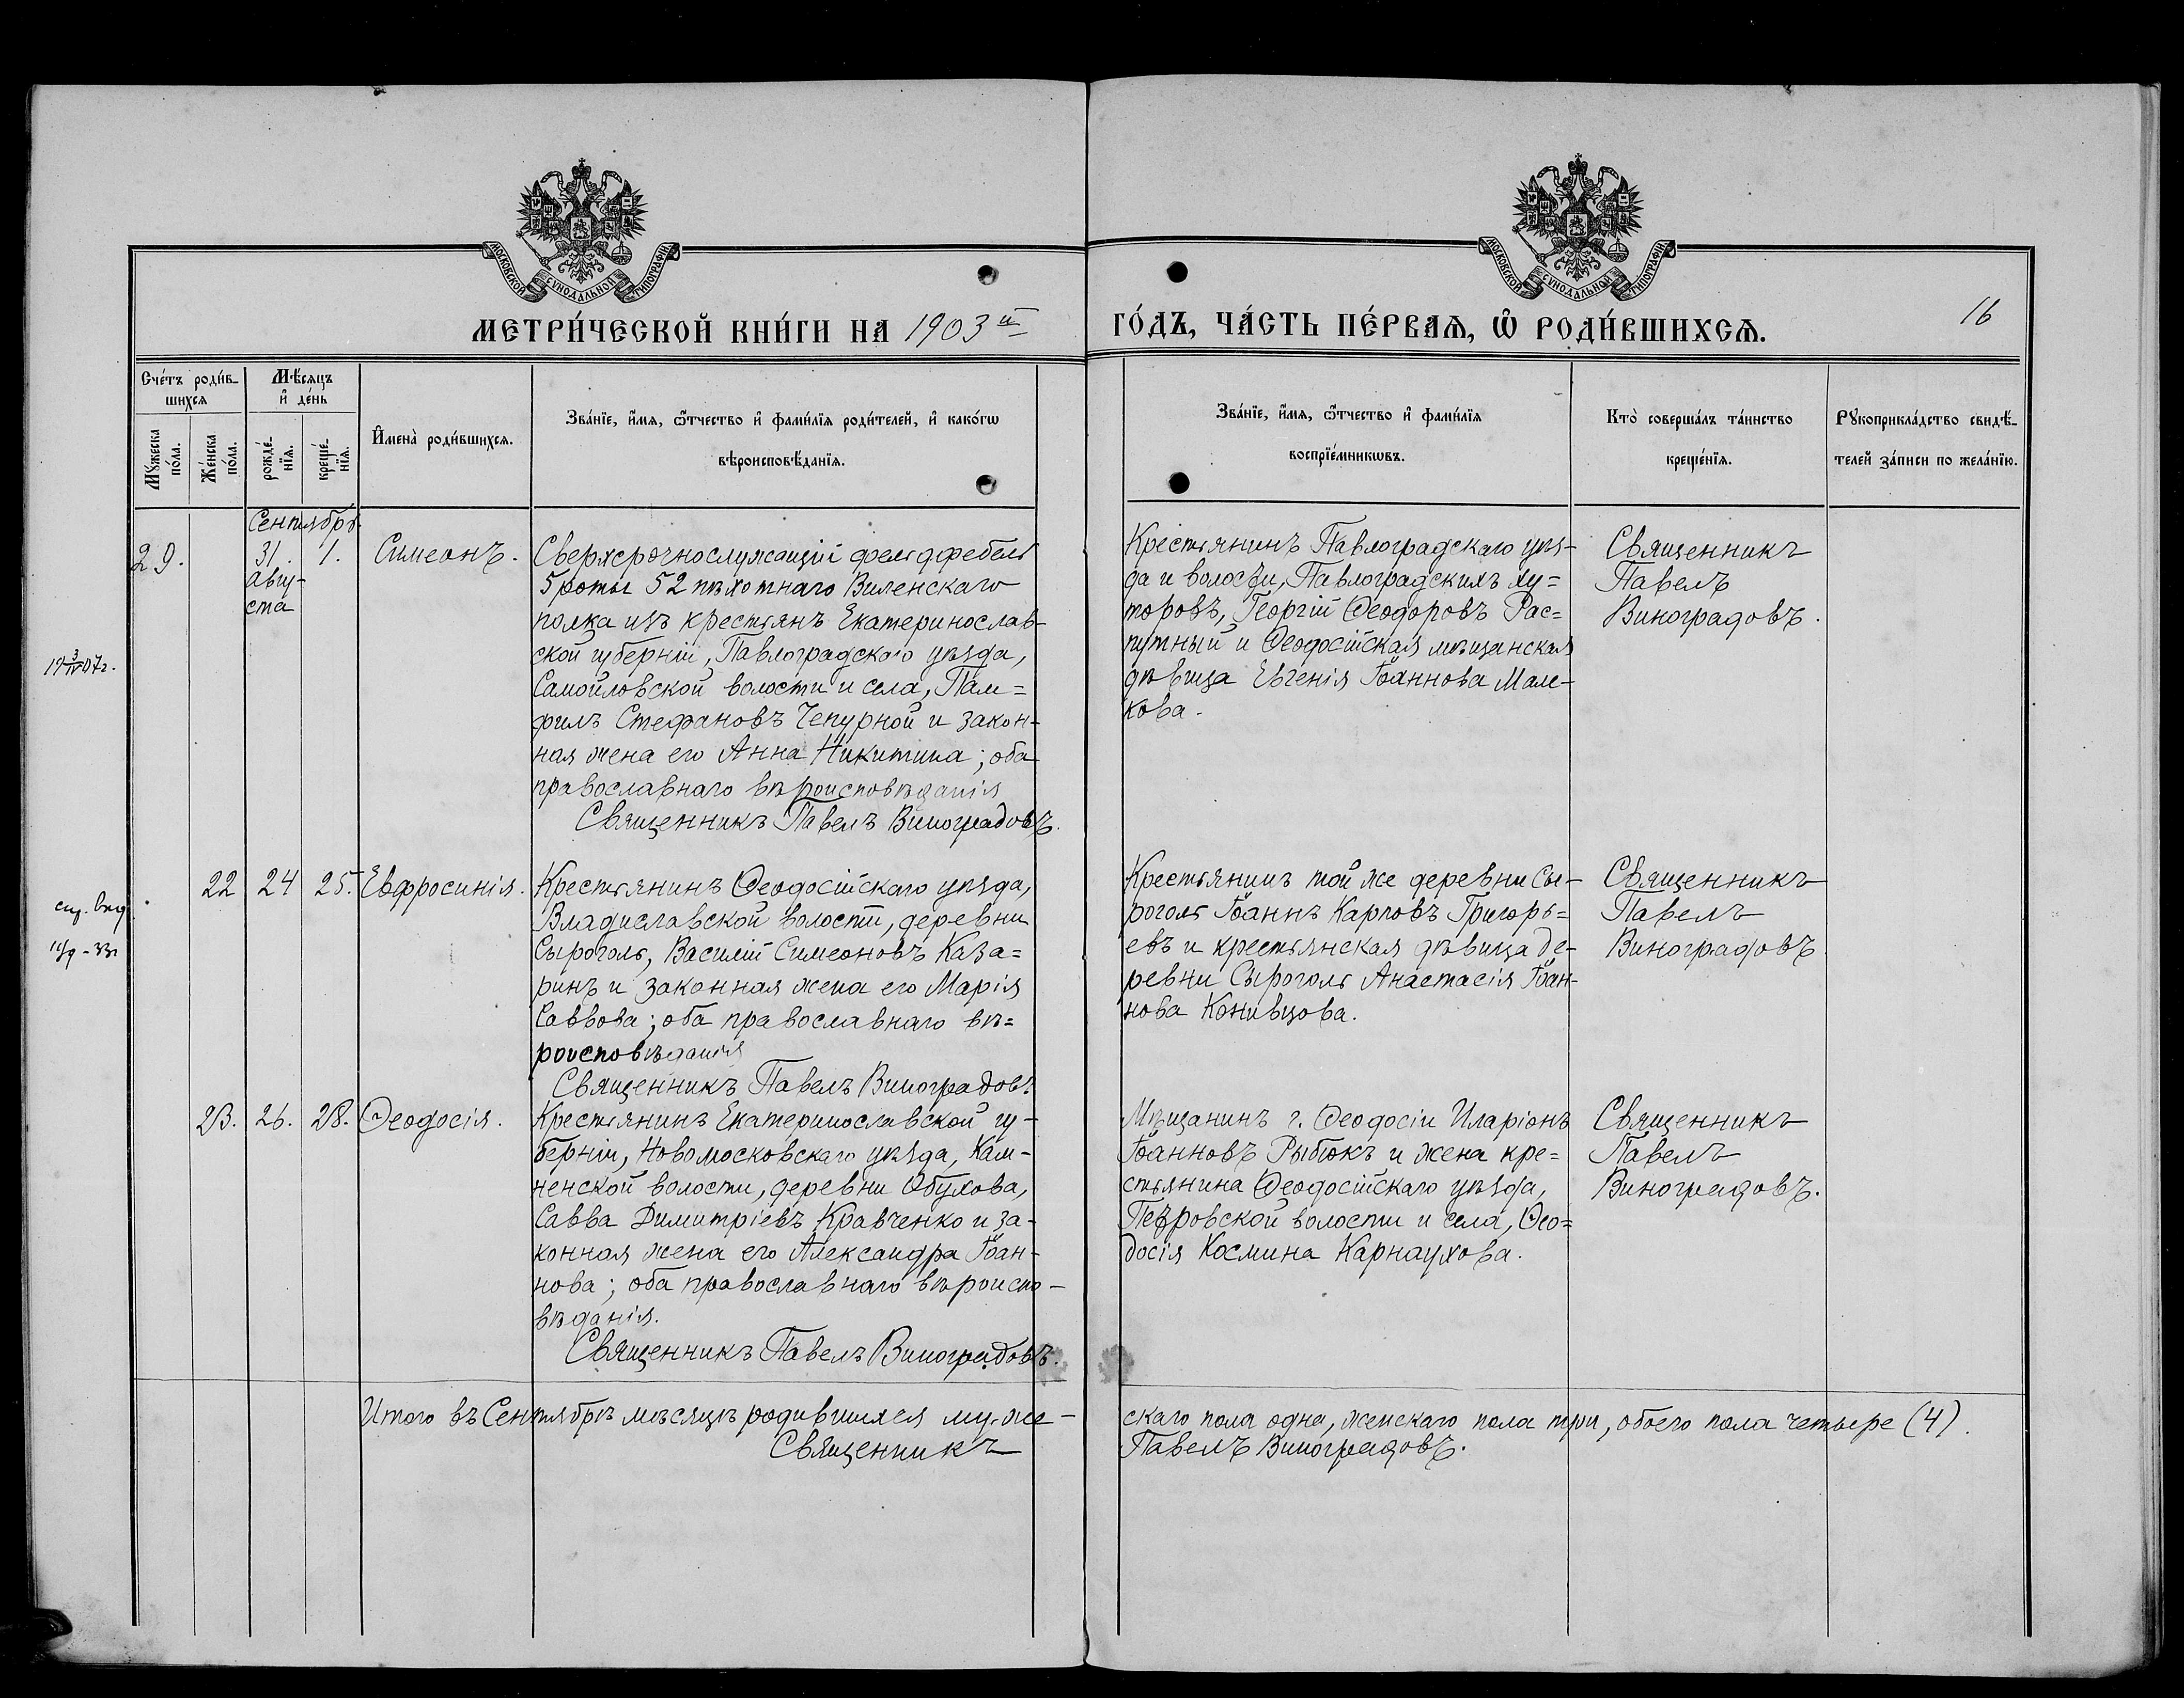 МОСКОВСКОЙ СѴНОДАЛЬНОЙ ТИПОГРАФІИ
МОСКОВСКОЙ СѴНОДАЛЬНОЙ ТИПОГРАФІИ
МЕТРИ́ЧЕСКОЙ КНИ́ГИ НА 1903 й
ГО́ДЪ, ЧА́СТЬ ПЕ́РВАѦ, Ѽ РОДИ́ВШИХСѦ.
16
Сче́тъ роди́в-
шихсѧ
Мѣ́сѧцъ
и҆ де́нь
Мꙋ́жеска
по́ла.
Же́нска
по́ла.
рожде́-
нїѧ.
креще́-
нїѧ.
И҆мена̀ роди́вшихсѧ.
Зва́нїе, и҆́мѧ, ѻ҆́тчество и҆ фами́лїѧ роди́телей, и҆ како́гѡ
вѣроисповѣ́данїѧ.
Зва́нїе, и҆́мѧ, ѻ҆́тчество и҆ фами́лїѧ
воспрїе́мникѡвъ.
Кто̀ соверша́лъ та́инство
креще́нїѧ.
Рꙋкоприкла́дство свидѣ́-
телей за́писи по жела́нїю.
Сентябрь
29. 31. 1. Симеонъ.
Авгу-
ста
Сверхсрочнослужащій фельдфебель
5 роты 52 пѣхотнаго Виленскаго
полка изъ крестьянъ Екатеринослав-
ской губерніи, Павлоградскаго уѣзда,
Самойловской волости и села, Пам=
филъ Стефановъ Чепурной и закон-
ная жена его Анна Никитина; оба
православнаго вѣроисповѣданія
Священникъ Павелъ Виноградовъ.
Крестьянинъ Павлоградскаго уѣз-
да и волости, Павлоградскихъ ху=
торовъ, Георгій Ѳеодоровъ Рас=
путный и Ѳеодосійская мѣщанская
дѣвица Евгенія Іоаннова Маль-
кова.
Священникъ
Павелъ
Виноградовъ.
22 24 25. Евфросинія.
Крестьянинъ Ѳеодосійскаго уѣзда,
Владиславской волости, деревни
Сыроголь, Василій Симеоновъ Каза=
ринъ и законная жена его Марія
Саввова; оба православнаго вѣ=
роисповѣданія
Священникъ Павелъ Виноградовъ
Крестьянинъ той же деревни Сы-
роголь Іоаннъ Карповъ Григорь=
евъ и крестьянская дѣвица де-
ревни Сыроголь Анастасія Іоан-
нова Конивцова.
Священникъ
Павелъ
Виноградовъ.
23. 26. 28. Ѳеодосія.
Крестьянинъ Екатеринославской гу-
берніи, Новомосковскаго уѣзда, Кам-
ненской волости, деревни Обухова,
Савва Димитріевъ Кравченко и за-
конная жена его Александра Іоан-
нова; оба православнаго вѣроиспо-
вѣданія.
Священникъ Павелъ Виноградовъ.
Мѣщанинъ г. Ѳеодосіи Иларіонъ
Іоанновъ Рыбюкъ и жена кре=
стьянина Ѳеодосійскаго уѣзда,
Петровской волости и села, Ѳео=
досія Космина Карнаухова.
Священникъ
Павелъ
Виноградовъ.
Итого въ Сентябрѣ мѣсяцѣ родившихся муже-
скаго пола одна, женскаго пола три, обоего пола четыре (4).
Священникъ
Павелъ Виноградовъ.